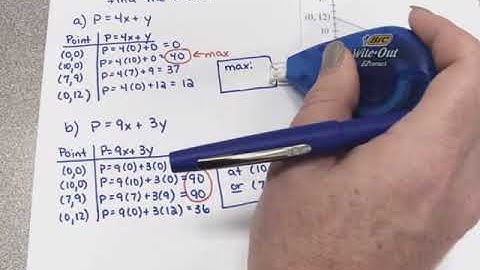 find the
a) P = 4x + y
Point P = 4x + y
(0,0) P = 4(0) + 0 = 0
(10,0) P = 4(10) + 0 = 40 ← max
(7,9) P = 4(7) + 9 = 37
(0,12) P = 4(0) + 12 = 12
max:
(0, 12)
10
BIC
Wite-Out
EZcorrect
b) P = 9x + 3y
Point P = 9x + 3y
(0,0) P = 9(0) + 3(0)
(10,0) P = 9(10) + 3(0) = 90
(7,9) P = 9(7) + 3(9) = 90
(0,12) P = 9(0) + 3(12) = 36
at (10
or (7